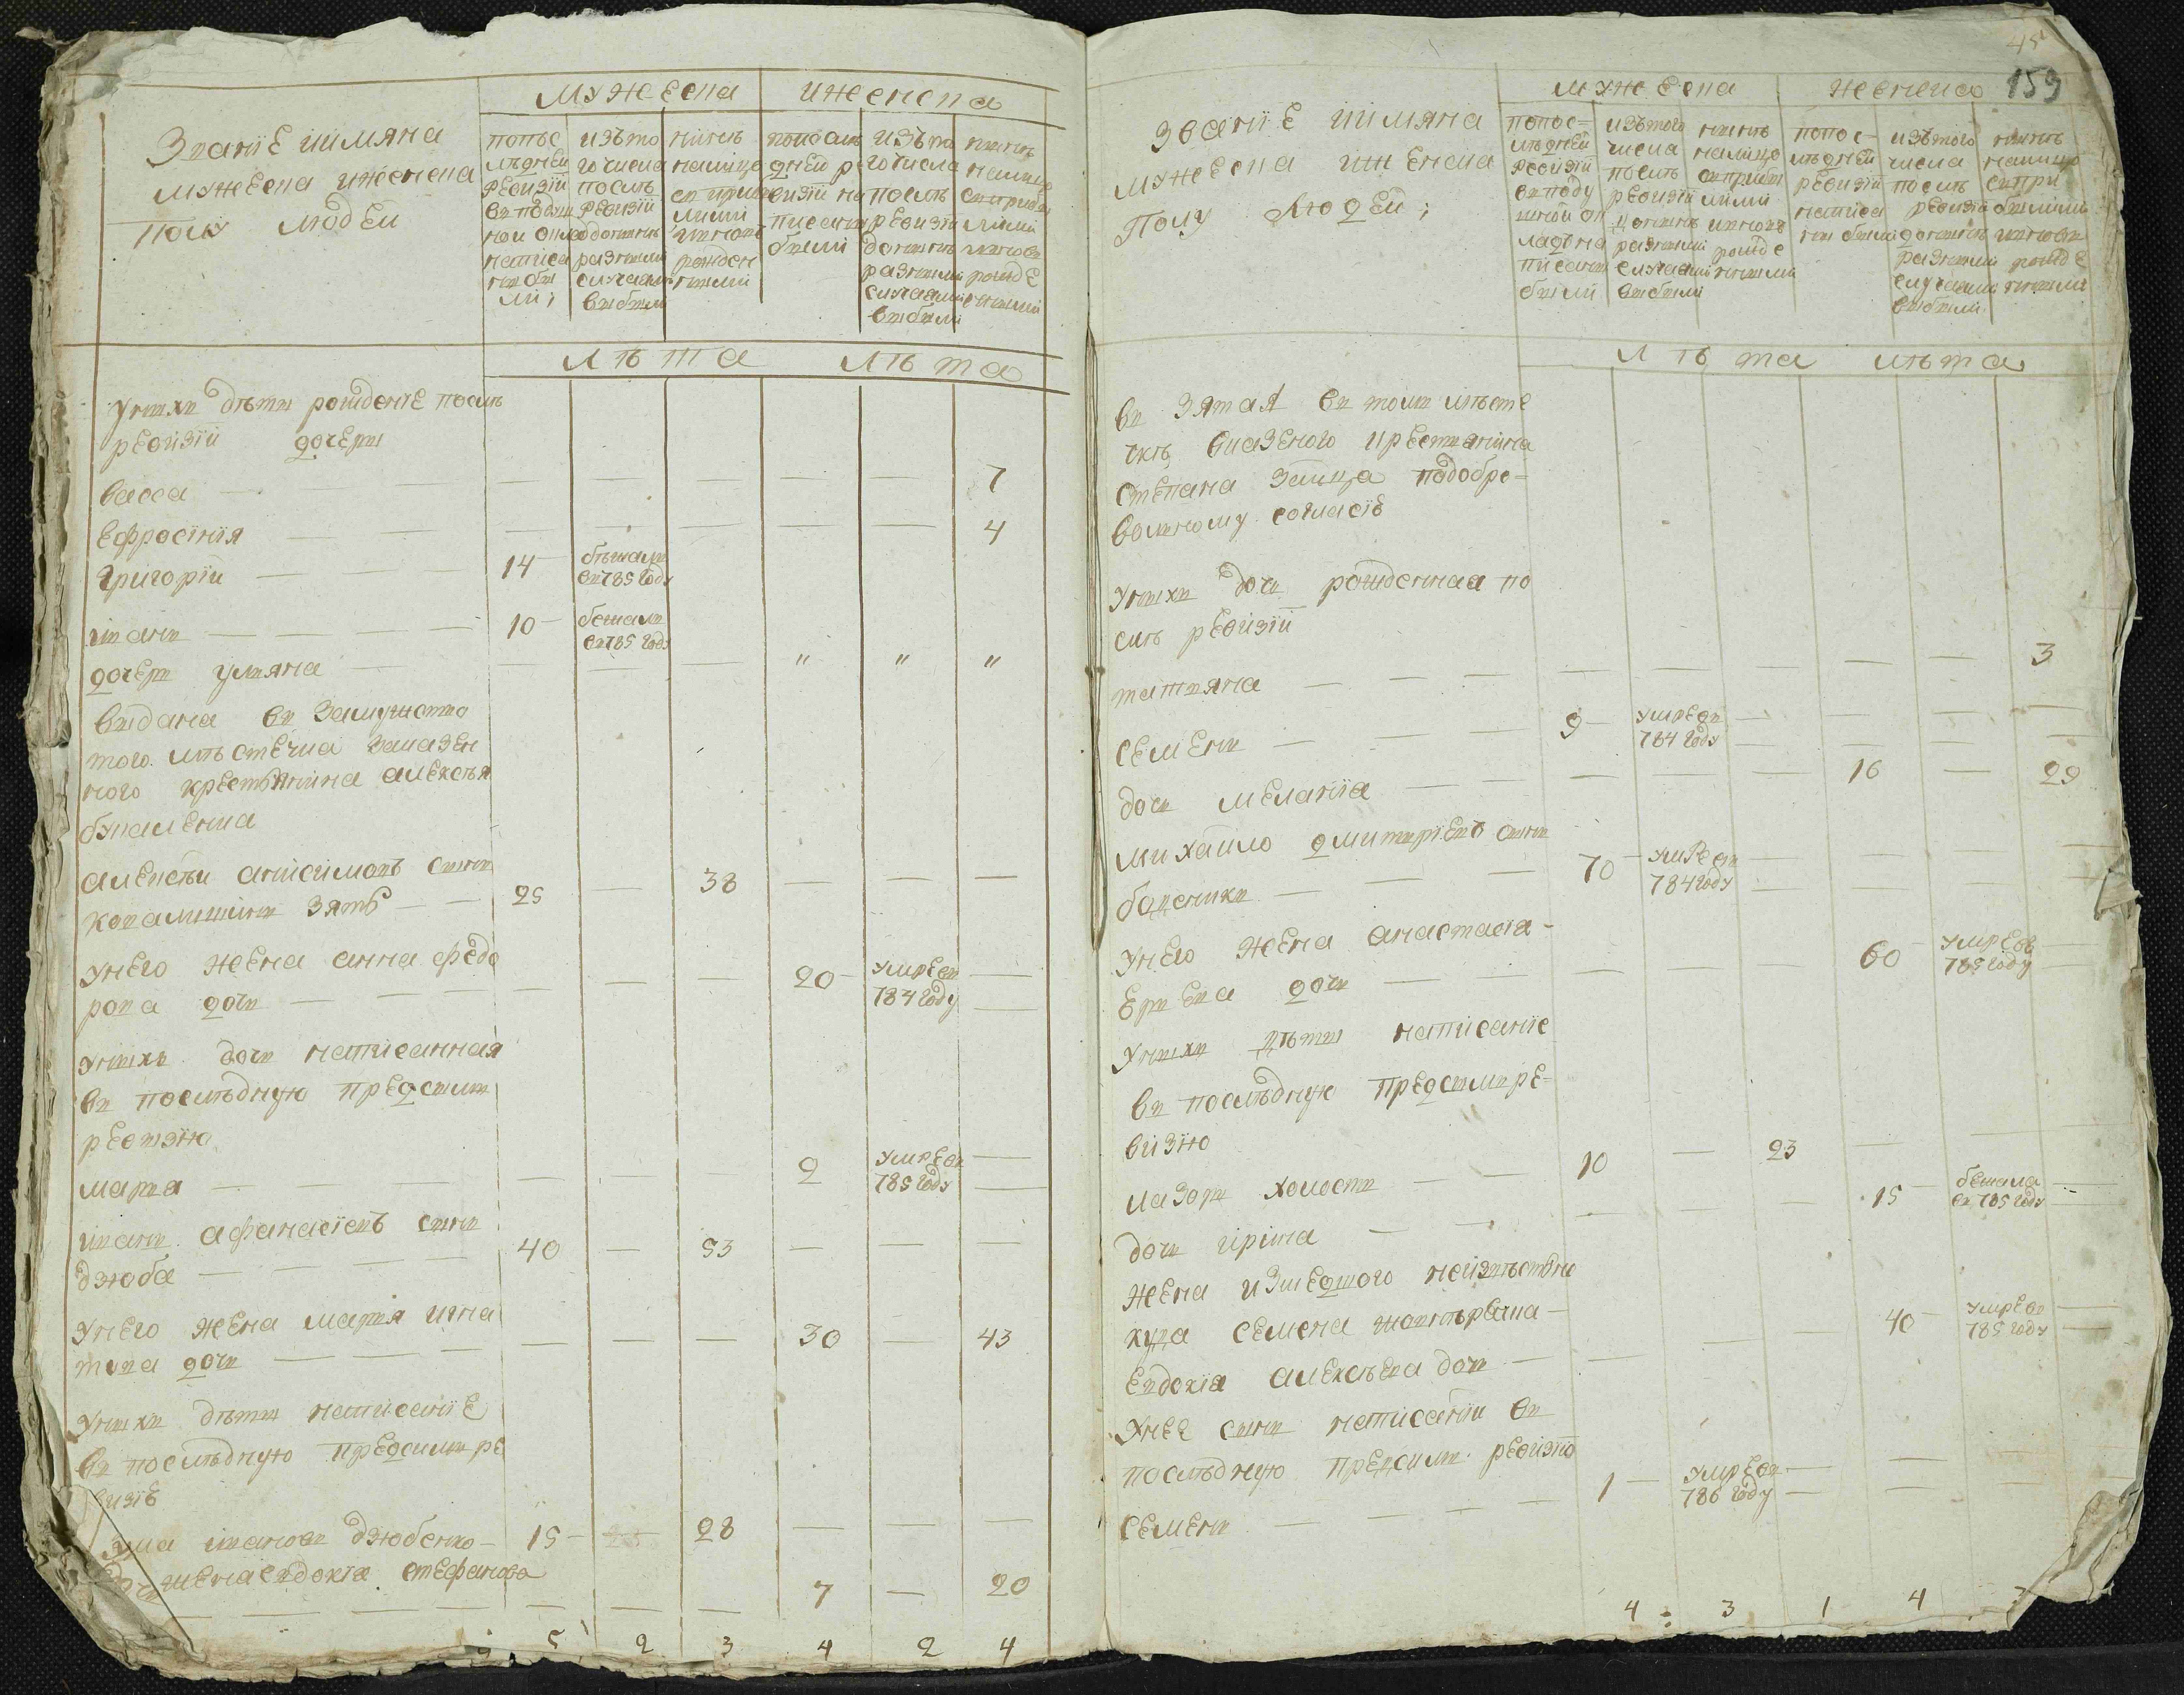 Званїе иимяна
мужеска иженска
Полу людеи
мужеска
иженска
попос
лѣдней
ревизїи
вподуш
ной окла
написа
ны бы
ли;
изъто
го числа
послѣ
ревизїи
до нынѣ
разными
случаями
выбыли
нинѣ
налицо
съ прибы
лими
ивновъ
рожден
ными
попослѣ
дней ре
визїи на
писаны
были
изъто
го числа
послѣ
ревизїи
донынѣ
разными
случаями
выбыли
нынѣ
налицо
съприбы
лими
ивновь
рожде
нными
лѣта
лѣта
унихъ дѣти рожденїе послѣ
ревизїи дочери
васса — — — — — — — — 7
Ефросїнїя — — — — — — — 4
Григорїи — — — 14 — бѣжалъ
въ 785 году
иванъ — — — — 10 — бежалъ
въ 785 году
дочеръ улияна — — — — " " "
выдана въ замужство
того мѣстечка заказен
ного крестьянина алексѣя
алексѣи анисимовъ сынъ
зять — — 25 — 38 — — —
унего жена анна федо
рова дочь — — — — — — 20 — умре въ
784 году
унихъ дочь написанная
въ послѣдную предсимъ
ревизїю
марѳа — — — — — — 2 умре въ
785 году
иванъ афанасїевъ сынъ
дзюба — — — — 40 — 53 — — —
унего жена марѳя игна
това дочь — — — — — — 30 — 43
унихъ дѣти написанїе
въ послѣдную предсимъ ре
визїе
ивановъ дзюбенко — 15 — 28 — — —
жена евдокїя стефанова
— — — — — 7 — 20
5 2 3 4 2 4
45
159
званїе иимяна
мужеска иженска
Полу людеи;
мужеска
женска
попос=
лѣдней
ревизїи
вподу
шнои ок
ладъ на
писаны
были
изътого
числа
послѣ
ревизїи
донынѣ
разными
случаями
выбыли
нынѣ
налицо
съприбы
лими
ивновъ
рожде
нными
попос-
лѣдней
ревизїи
написа
ны были
изътого
числа
послѣ
ревизїи
донынѣ
разными
случаями
выбыли
нынѣ
налицо
съпри
былими
ивновь
рожде
нными
лѣта
лѣта
въ зятя въ томъ мѣсте
чкѣ казеного крестянина
степана заица подобро=
волному согласїе
унихъ дочь рожденная по
слѣ ревизїи
татияна — — — — — — — — 3
семенъ — — — 9 — умре въ
784 году
дочъ меланїа — — — — — 16 — 29
михаило дмитрїевъ сынъ
— — — 70 — умре въ
784 году
унего жена анастасїа-
дочь — — — — — 60 — умре въ
785 году
унихъ дѣти написанїе
въ послѣдную предсимъ ре=
визїю
лазоръ холостъ — — 10 — 23 —
дочъ ирина — — — — — 15 — бежала
въ 785 году
жена изшедшого неизвѣстно
куда семена
евдокїя алексѣева дочь — — — — 40 — умре въ
785 году
унее сынъ написанїи въ
послѣдную предсимъ ревизїю
семенъ — — — — 1 — умре въ
786 году
4 : 3 1 4